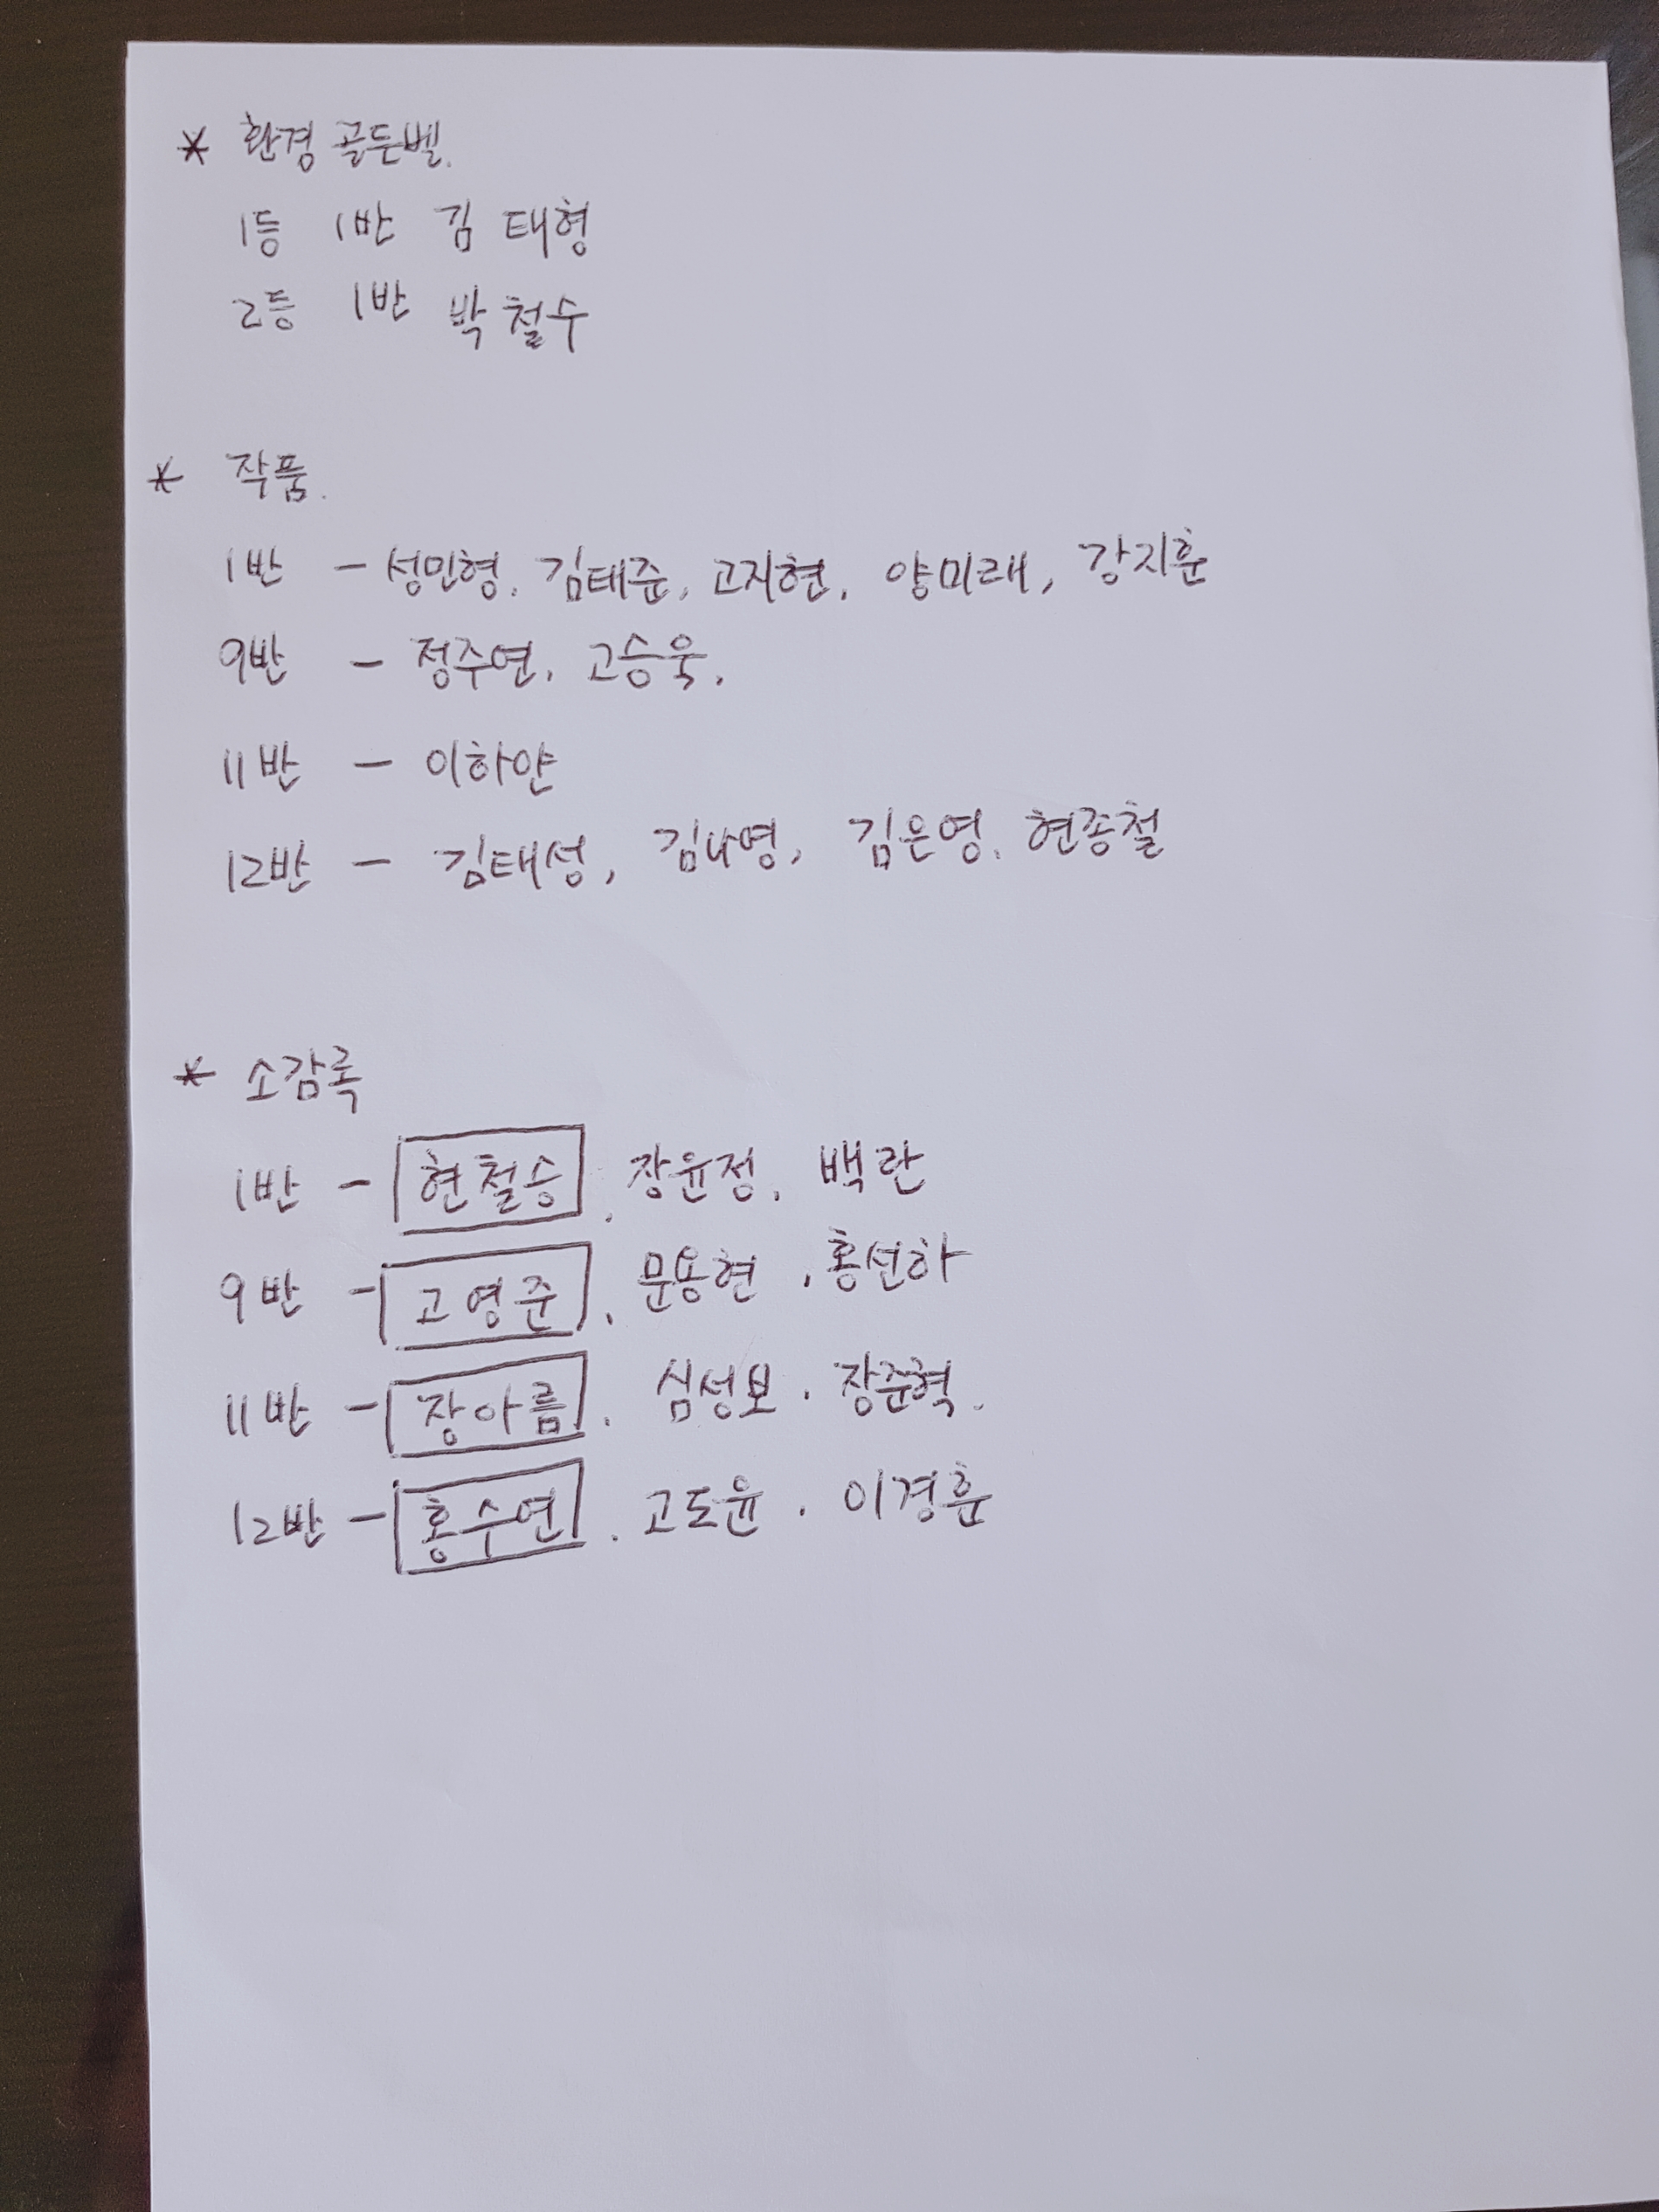 * 환경 골든벨.
1등 1반 김태형
2등 1반 박철수
* 작품.
1반 - 성민형, 김태준, 고지현, 양미래, 강지훈
9반 - 정주연, 고승욱,
11반 - 이하얀
12반 - 김태성, 김나영, 김은영, 현종철
* 소감록
1반 - 현철승, 장윤정, 백란
9반 - 고영준, 문용현, 홍선하
11반 - 장아름, 심성보, 장준혁.
12반 - 홍수연, 고도윤, 이경훈